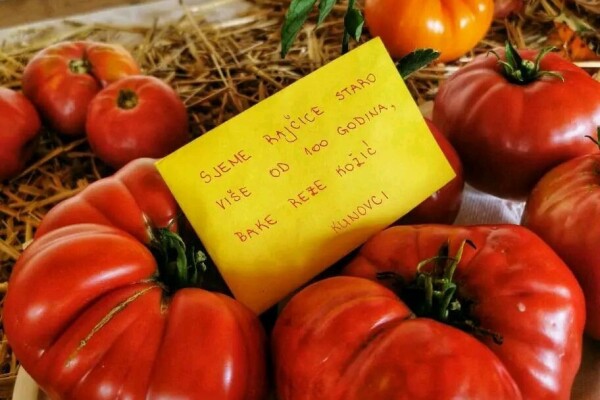 SJEME RAJČICE STARO
VIŠE OD 100 GODINA,
BAKE REZE KOŽIĆ
KLINOVCI